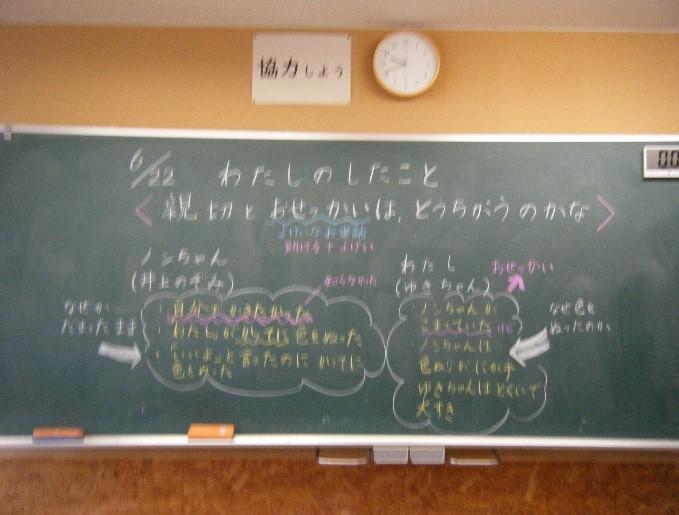 協力しよう
00
6/22 わたしのしたこと
<親切とおせっかいは、どうちがうのかな>
よけいなお世話
助ける+よけい
ノンちゃん
(井上のぞみ)
知らなかった
なぜか
だまったまま
自分でかきたかった
・わたしがかってに色をぬった
・いいよって言ったのにかってに
色をぬった
わたし
(ゆきちゃん)
おせっかい
・ノンちゃんが
こまっていた
・ノンちゃんは
色ぬりがにが手
ゆきちゃんはとくいで
大すき
なぜ色を
ぬったのか